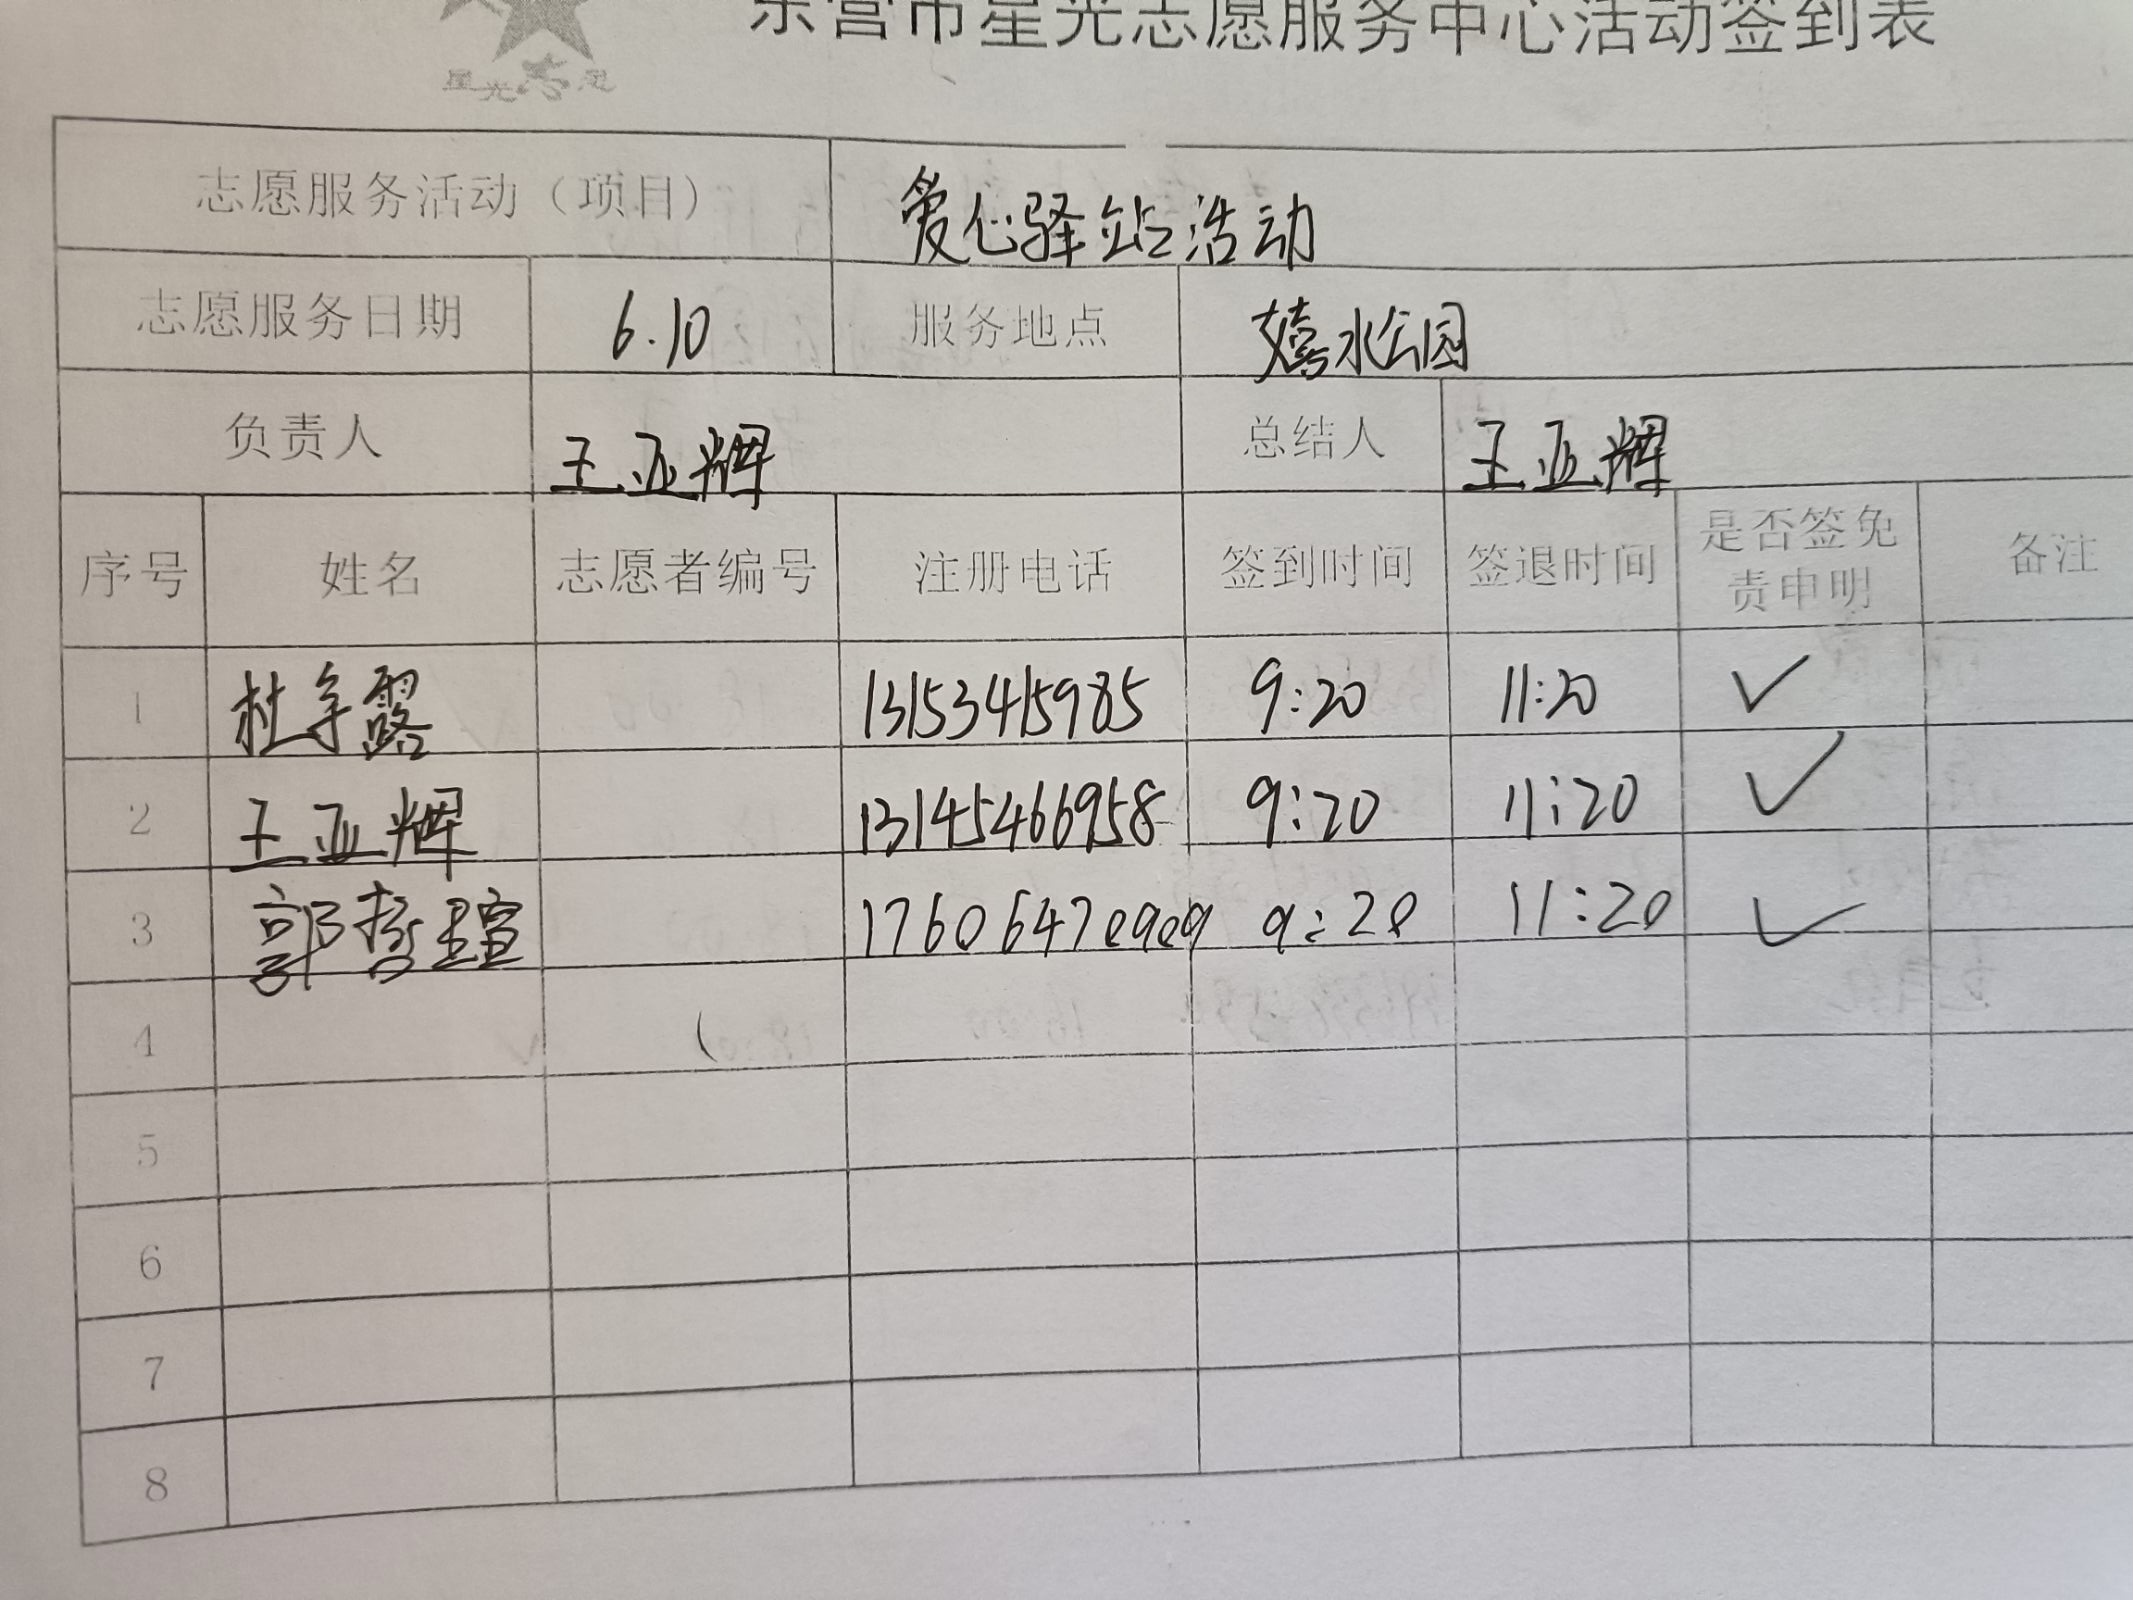 东营市星光志愿服务中心活动签到表
星光志愿
志愿服务活动（项目） 爱心驿站活动
志愿服务日期 6.10 服务地点 嬉水公园
负责人 王亚辉 总结人 王亚辉
序号 姓名 志愿者编号 注册电话 签到时间 签退时间 是否签免责申明 备注
1 杜冬露 13153415985 9:20 11:20 ✓
2 王亚辉 13145466958 9:20 11:20 ✓
3 郭哲瑄 17606470909 9:20 11:20 ✓
4
5
6
7
8